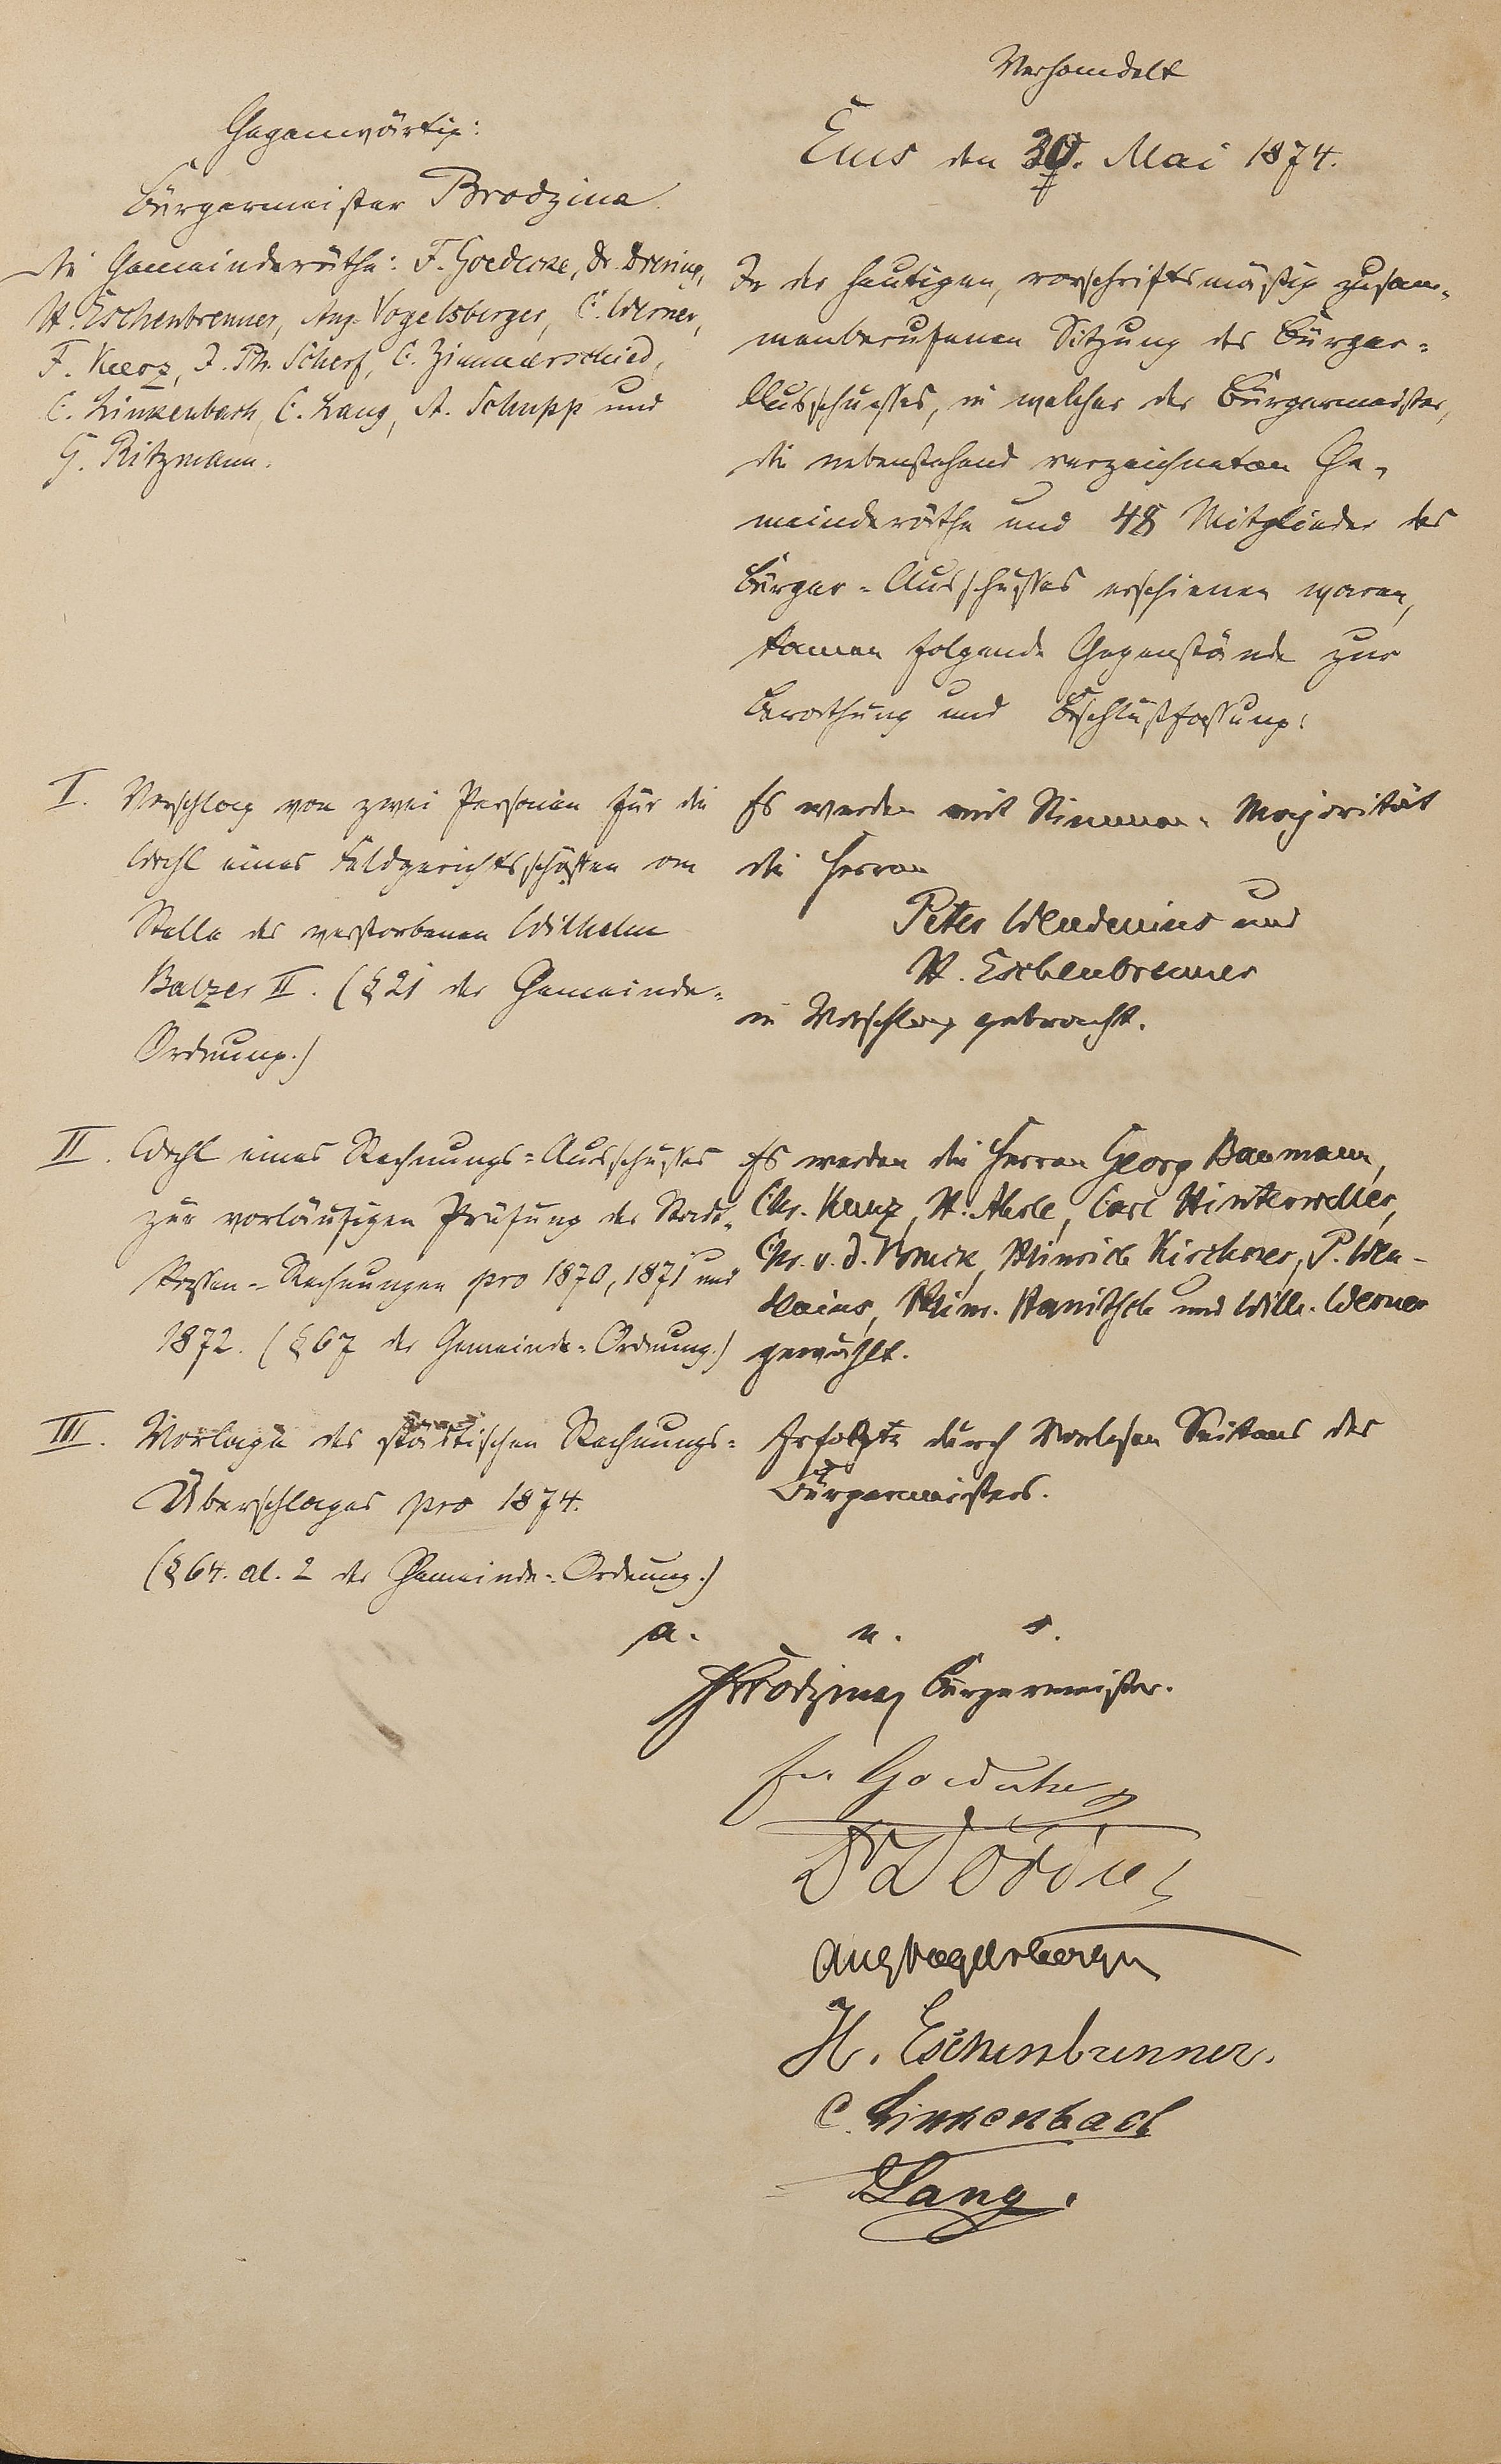 Verhandelt
Ems den 30. Mai 1874.
Gegenwärtig:
Bürgermeister Brodzina
die Gemeinderäthe: F. Goedecke, Dr. Döring,
H. Eschenbrenner, Aug. Vogelsberger, C. Werner,
F. Keerz, J. Ph. Scherf, C. Zimmerschied,
C. Linkenbach, C. Lang, A. Schupp und
G. Ritzmann.
In der heutigen, vorschriftsmäßig zusam-
menberufenen Sitzung des Bürger-
Ausschusses, in welcher der Bürgermeister,
die nebenstehend verzeichneten Ge-
meinderäthe und 48 Mitglieder des
Bürger-Ausschusses erschienen waren,
kamen folgende Gegenstände zur
Berathung und Beschlußfassung:
I. Vorschlag von zwei Personen für die
Wahl eines Feldgerichtsschöffen an
Stelle des verstorbenen Wilhelm
Balzer II. (§ 21 der Gemeinde-
Ordnung.)
Es werden mit Stimmen-Majorität
die Herren
Peter Wendenius und
H. Eschenbrenner
in Vorschlag gebracht.
II. Wahl eines Rechnungs-Ausschusses
zur vorläufigen Prüfung der Stadt-
kassen-Rechnungen pro 1870, 1871 und
1872. (§ 67 der Gemeinde-Ordnung.)
Es werden die Herren Georg Baumann,
Chr. H. Carl Hinterweller,
Chr. v. d. Heinrich Kirchner, P. Wen-
denius, Hanitsch und Wilh. Werner
gewählt.
III. Vorlage des städtischen Rechnungs-
Überschlages pro 1874.
(§ 64. al. 2 der Gemeinde-Ordnung.)
Erfolgte durch Vorlesen Seitens des
Bürgermeisters.
a. u. s.
Brodzina, Bürgermeister.
Fr. Goedecke
Dr Döring
Aug Vogelsberger
H. Eschenbrenner.
C. Linkenbach
C Lang.